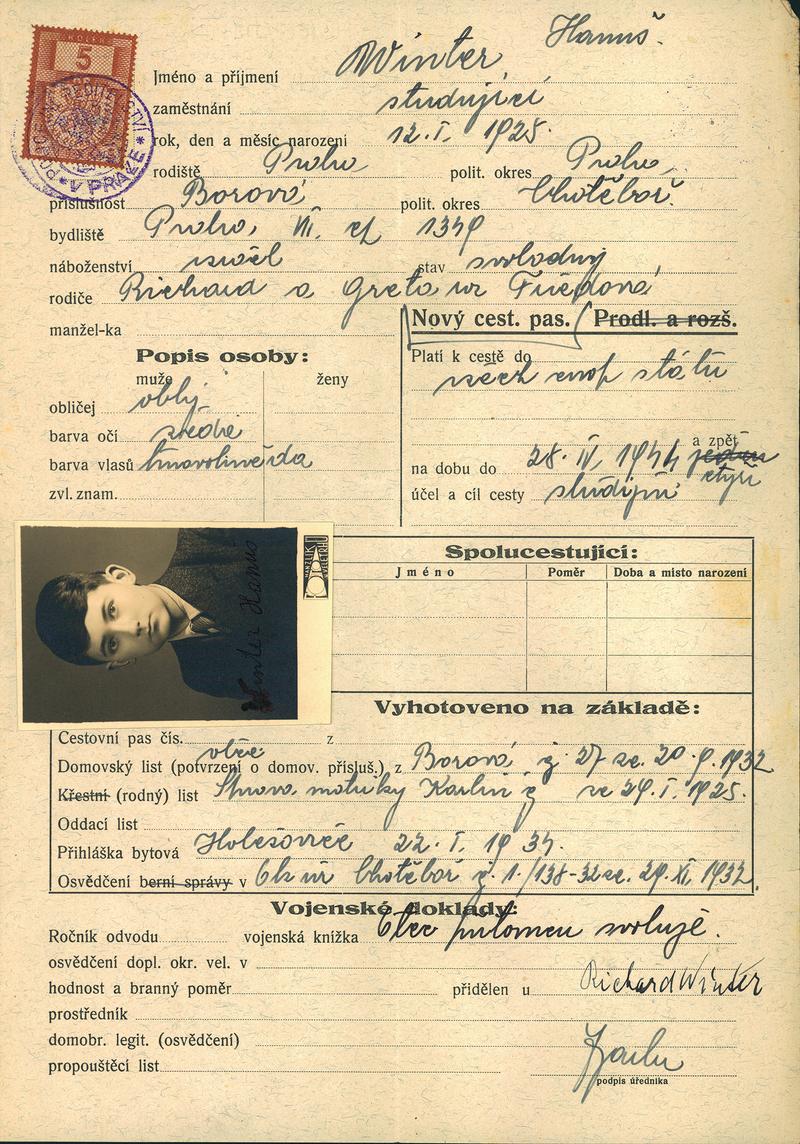 Hanuš.
Jméno a příjmení Winter
5
V PRAZE
zaměstnání studující
rok, den a měsíc narození 12. I. 1925.
rodiště Praha polit. okres Praha
příslušnost Borová polit. okres Chotěboř.
bydliště Praha, VII. čp 1349
náboženství israel stav svobodný
rodiče Richard a Greta Friedová
Nový cest. pas. Prodl. a rozš.
manžel-ka
Popis osoby:
muže ženy
obličej oblý
barva očí šedé
barva vlasů tmavohnědá
zvl. znam.
Platí k cestě do
všech evrop států
a zpět
na dobu do 28. IV. 1944 jeden
čtyři
účel a cíl cesty studijní
Winter Hanuš
Spolucestující:
Jméno Poměr Doba a místo narození
Vyhotoveno na základě:
Cestovní pas čís. z
otce
Domovský list (potvrzení o domov. přísluš.) z Borová č 27 ze 20.9.1932
Křestní (rodný) list matriky Karlín č ze 29. I. 1925.
Oddací list
Přihláška bytová Holešovice 22. I. 1934.
Osvědčení berní správy v Chotěboř č. 1./138-32 ze. 29. XI. 1932.
Vojenské doklady:
Ročník odvodu vojenská knížka Otec přítomen svoluje.
osvědčení dopl. okr. vel. v
hodnost a branný poměr přidělen u Richard Winter
prostředník
domobr. legit. (osvědčení)
propouštěcí list
podpis úředníka